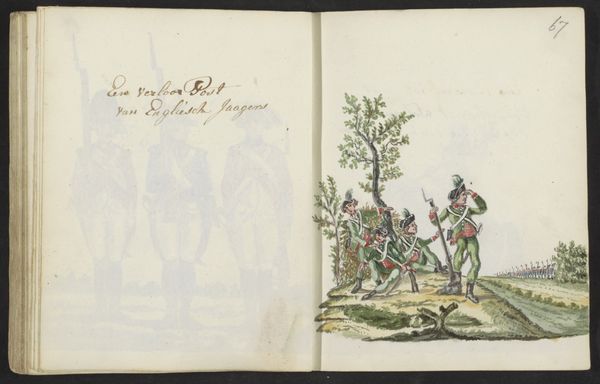 Een verloor Post
van Englisch Jaagers
67